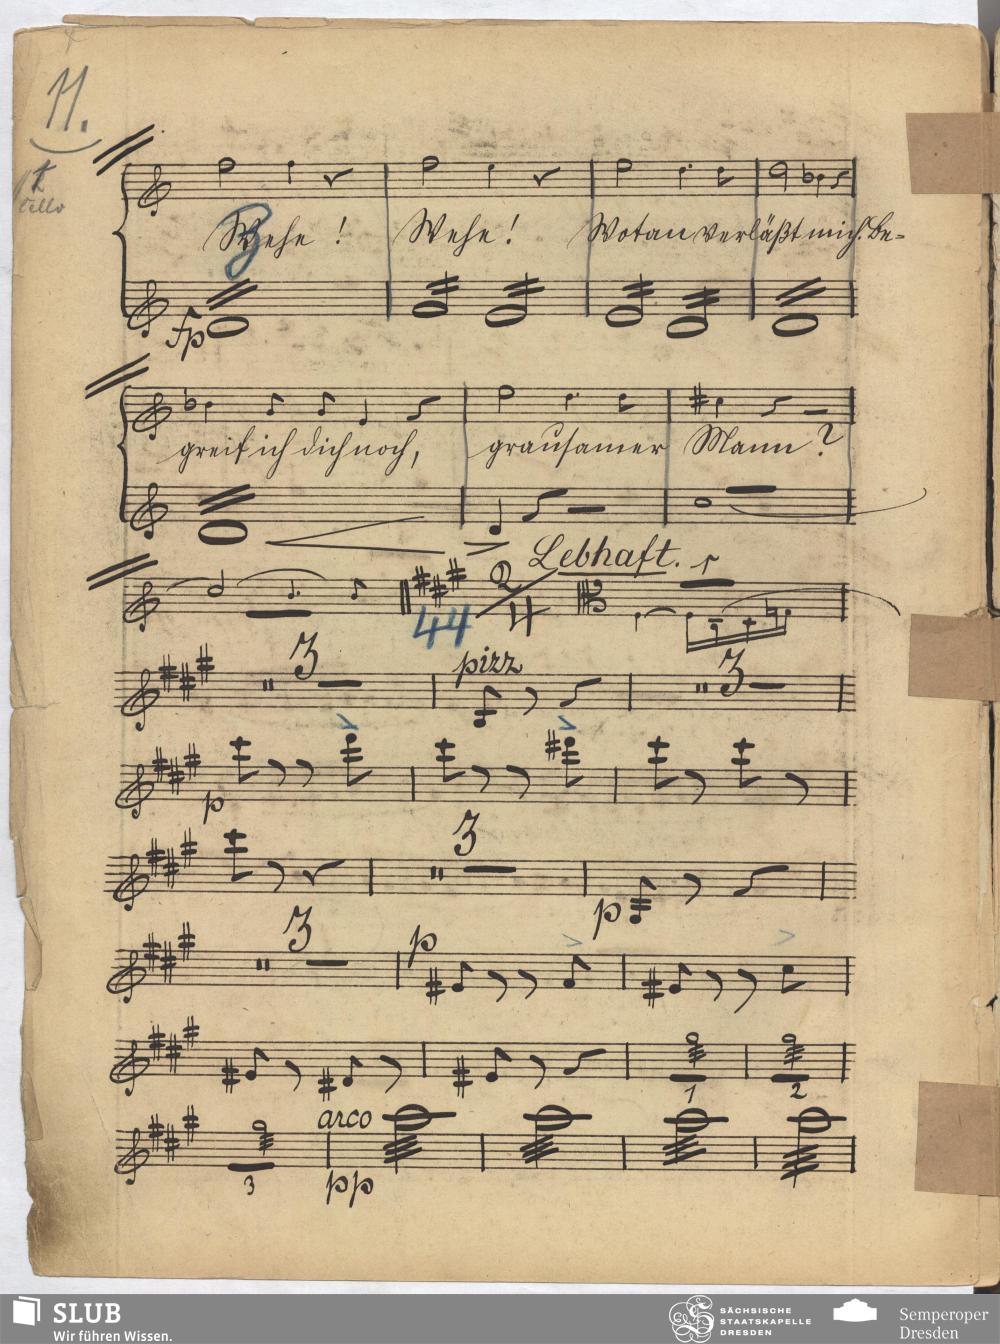 11.
Cello
Wehe! Wehe! Wotan verläßt mich. Be-
fp
greif' ich dich noch, grausamer Mann?
Lebhaft.
44 2/4
3 pizz 3
p
3
p
3 p
1 2
arco
3 pp
SLUB
Wir führen Wissen.
SÄCHSISCHE
STAATSKAPELLE
DRESDEN
Semperoper
Dresden